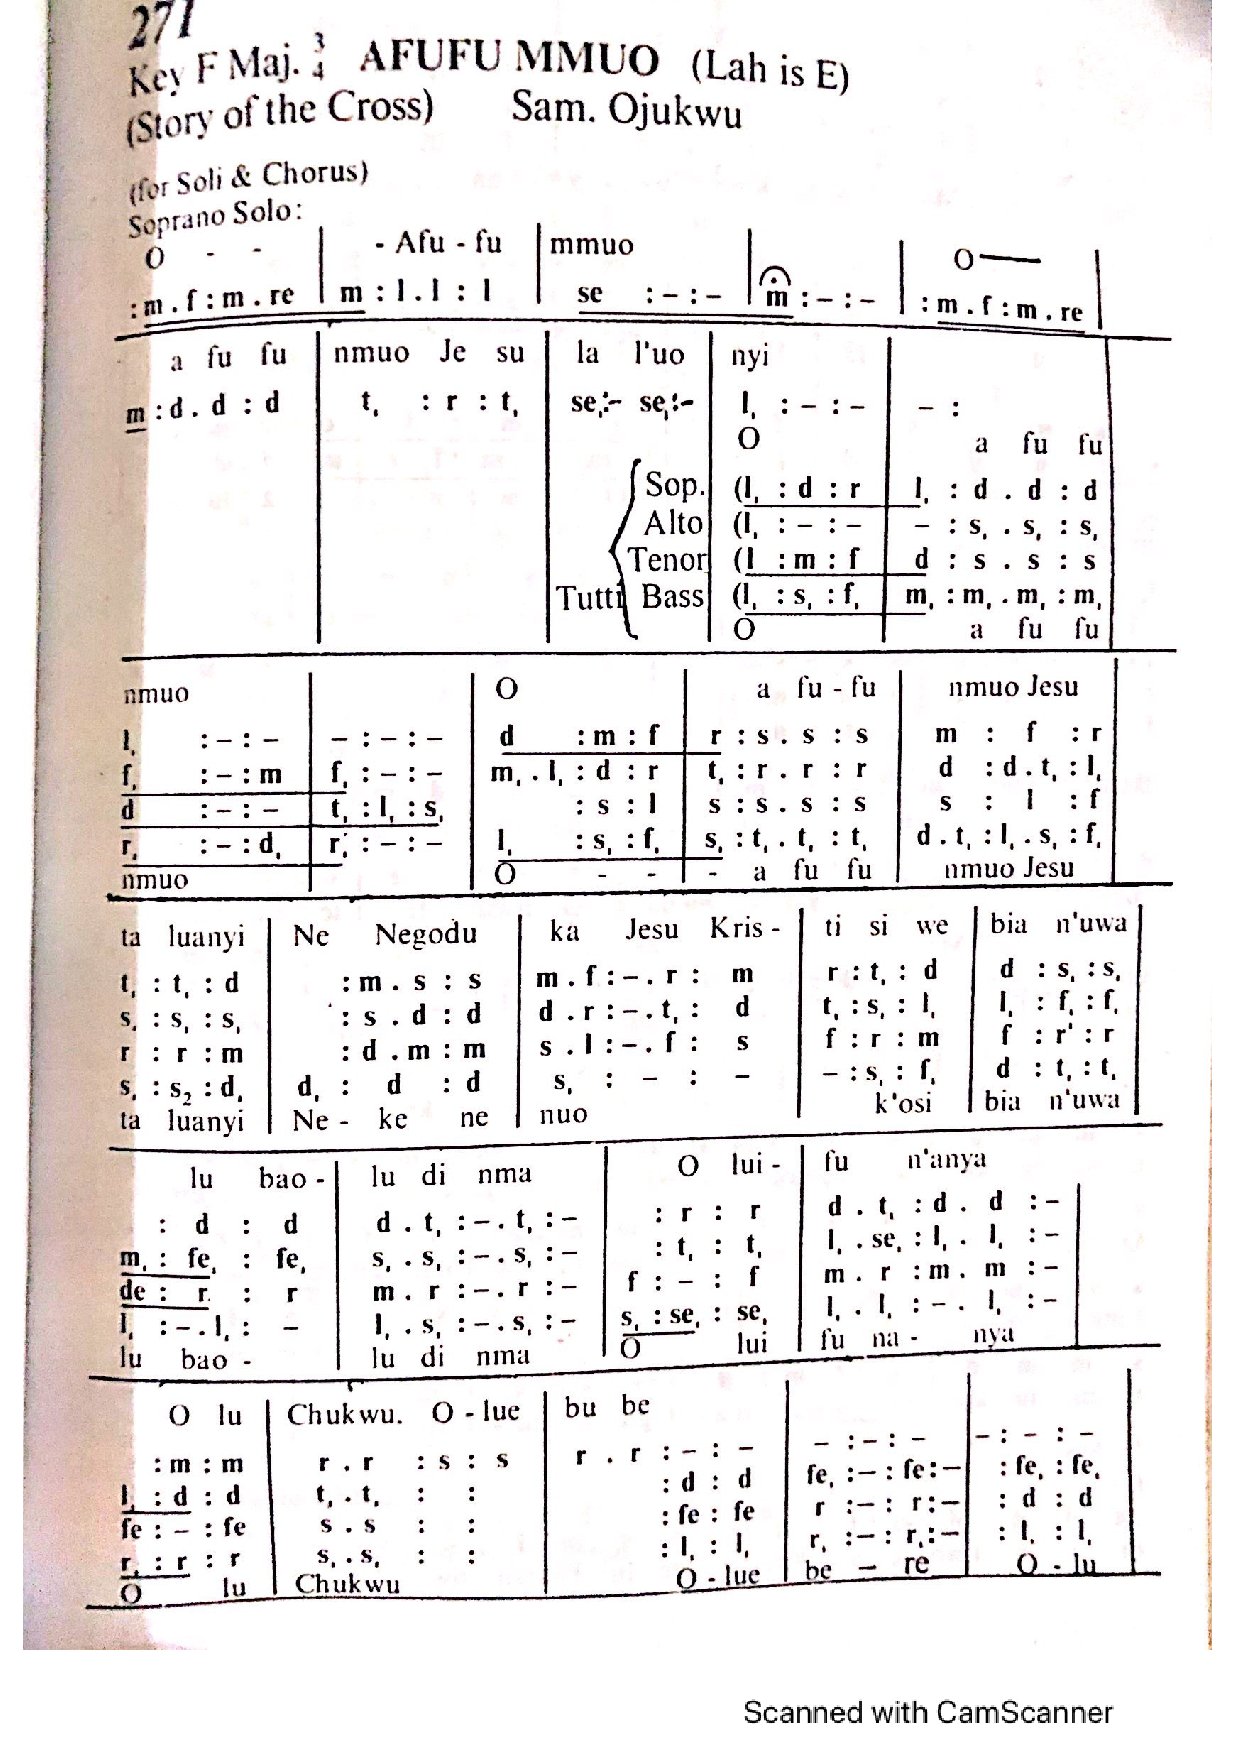 271
Key F Maj. 3/4 AFUFU MMUO (Lah is E)
(Story of the Cross) Sam. Ojukwu
(for Soli & Chorus)
Soprano Solo:
O - - | - Afu - fu | mmuo | | O—
: m . f : m . re | m : l . l : l | se : – : – | m : – : – | : m . f : m . re |
a fu fu | nmuo Je su | la l'uo | nyi
m : d . d : d | t, : r : t, | se,:– se,:– | l, : – : – | – :
O | a fu fu
Sop. (l, : d : r | l, : d . d : d
Alto (l, : – : – | – : s, . s, : s,
Tenor (l : m : f | d : s . s : s
Tutti Bass (l, : s, : f, | m, : m, . m, : m,
O | a fu fu
nmuo | | O | a fu - fu | nmuo Jesu
l, : – : – | – : – : – | d : m : f | r : s . s : s | m : f : r
f, : – : m | f, : – : – | m, . l, : d : r | t, : r . r : r | d : d . t, : l,
d : – : – | t, : l, : s, | : s : l | s : s . s : s | s : l : f
r, : – : d, | r, : – : – | l, : s, : f, | s, : t, . t, : t, | d . t, : l, . s, : f,
nmuo | | O - - | - a fu fu | nmuo Jesu
ta luanyi | Ne Negodu | ka Jesu Kris - | ti si we | bia n'uwa
t, : t, : d | : m . s : s | m . f : – . r : m | r : t, : d | d : s, : s,
s, : s, : s, | : s . d : d | d . r : – . t, : d | t, : s, : l, | l, : f, : f,
r : r : m | : d . m : m | s . l : – . f : s | f : r : m | f : r : r
s, : s₂ : d, | d, : d : d | s, : – : – | – : s, : f, | d : t, : t,
ta luanyi | Ne - ke ne | nuo | k'osi | bia n'uwa
lu bao - | lu di nma | O lui - | fu n'anya
: d : d | d . t, : – . t, : – | : r : r | d . t, : d . d : –
m, : fe, : fe, | s, . s, : – . s, : – | : t, : t, | l, . se, : l, . l, : –
de : r : r | m . r : – . r : – | f : – : f | m . r : m . m : –
l, : – . l, : – | l, . s, : – . s, : – | s, : se, : se, | l, . l, : – . l, : –
lu bao - | lu di nma | O lui | fu na - nya
O lu | Chukwu. O - lue | bu be
: m : m | r . r : s : s | r . r : – : – | – : – : – | – : – : –
l, : d : d | t, . t, : : | : d : d | fe, : – : fe : – | : fe, : fe,
fe : – : fe | s . s : : | : fe : fe | r : – : r : – | : d : d
r, : r : r | s, . s, : : | : l, : l, | r, : – : r, : – | : l, : l,
O lu | Chukwu | O - lue | be – re | O - lu
Scanned with CamScanner